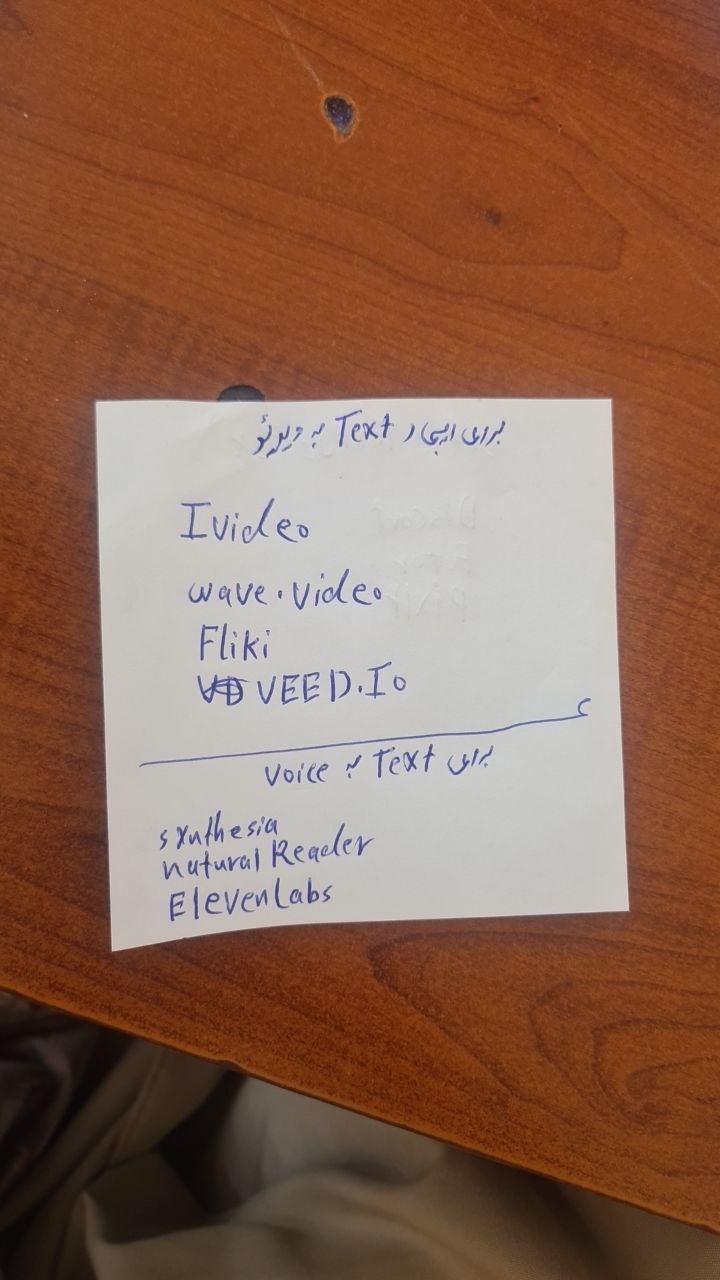 برای ایجاد Text به ویدئو
Ivideo
wave.video
Fliki
VEED.Io
برای Text به Voice
synthesia
natural Reader
ElevenLabs